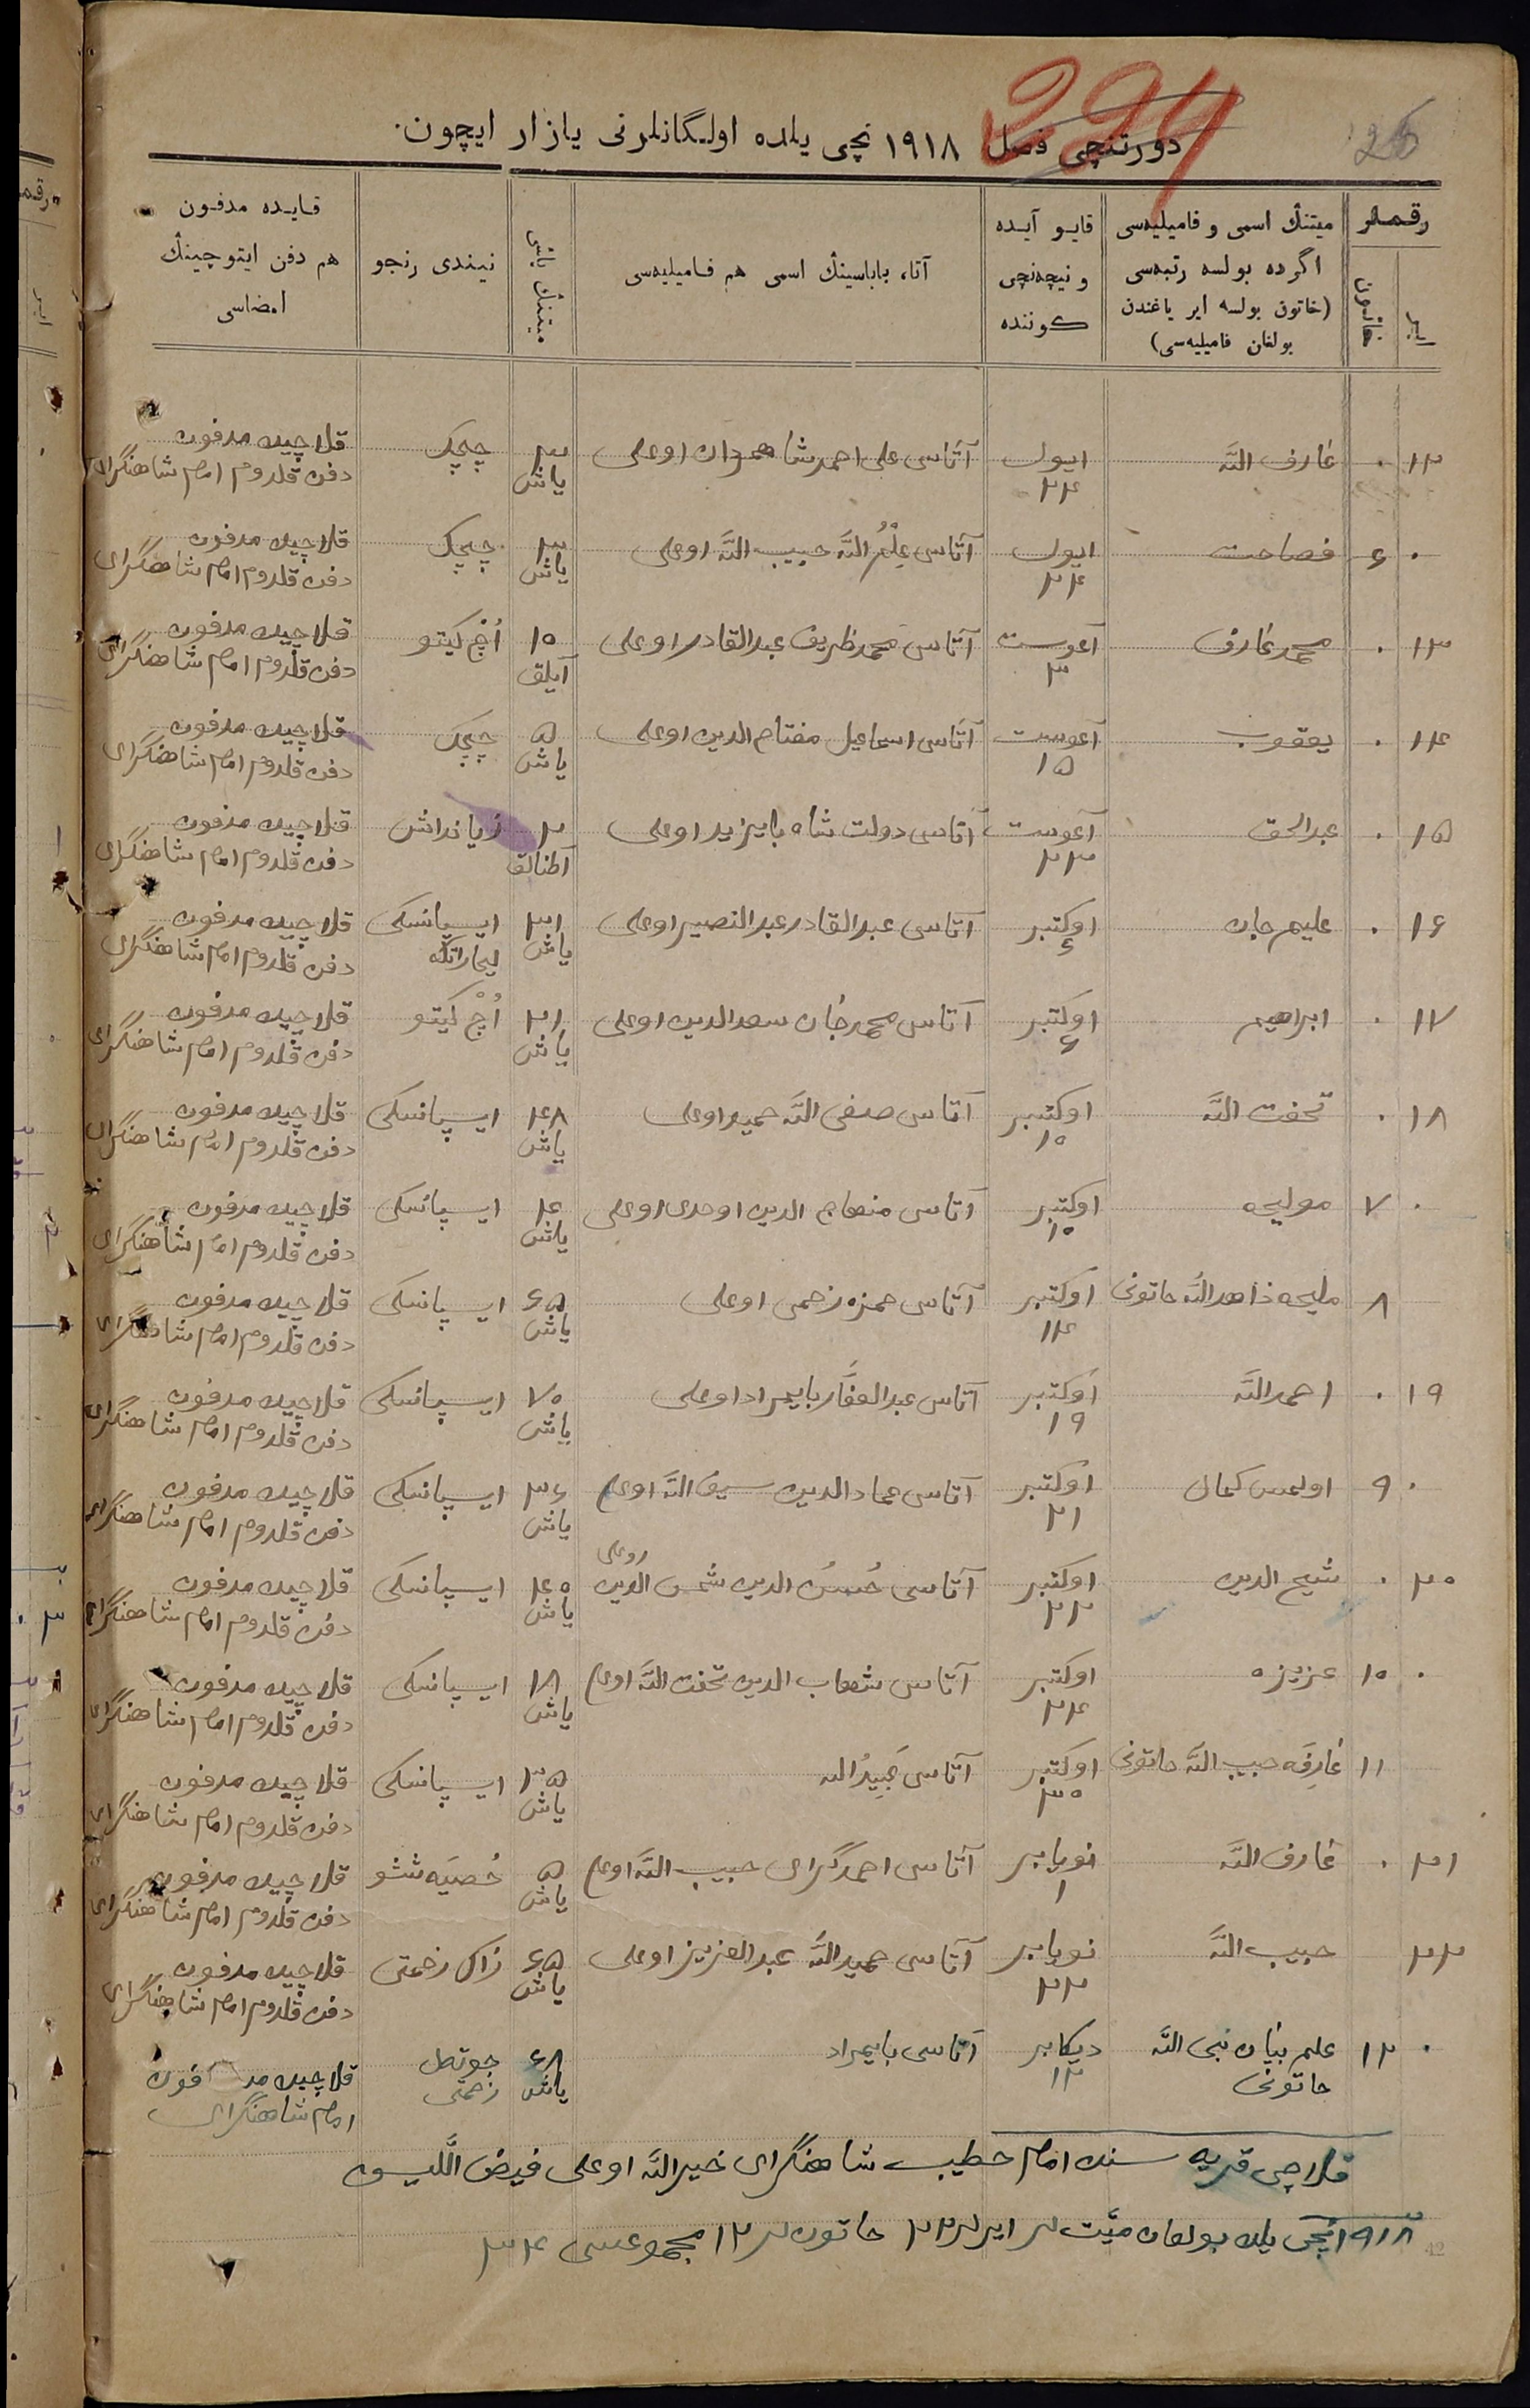 26
294
دورتنچی فصل ۱۹۱۸ نچی یلده اولگانلرنی یازار ایچون.
رقملر
ایر
خاتون
میتنڭ اسمی و فامیلیه‌سی اگرده بولسه رتبه‌سی (خاتون بولسه ایر یاغندن بولغان فامیلیه‌سی)
قایو آیده و نیچه‌نچی کوننده
آتا، باباسینڭ اسمی هم فامیلیه‌سی
میتنڭ یاشی
نیندی رنجو
قایده مدفون هم دفن ایتوچینڭ امضاسی
۱۲ ۰ عارف اللّه ایول ۲۴ آتاسی علی احمد شاهمردان اوغلی ۳ یاش چچک قلاچیده مدفون
دفن قلدوم امام شاهنگرای
۰ ۶ فصاحت ایول ۲۴ آتاسی عِلْمُ اللّه حبیب اللّه اوغلی ۳ یاش چچک قلاچیده مدفون
دفن قلدوم امام شاهنگرای
۱۳ ۰ محمد عارف آغوست ۳ آتاسی محمد ظریف عبدالقادر اوغلی ۱۰ آیلق اُچ کیتو قلاچیده مدفون
دفن قلدوم امام شاهنگرای
۱۴ ۰ یعقوب آغوست ۱۵ آتاسی اسماعیل مفتاح الدین اوغلی ۵ یاش چچک قلاچیده مدفون
دفن قلدوم امام شاهنگرای
۱۵ ۰ عبدالحق آغوست ۲۳ آتاسی دولت شاه بایزید اوغلی ۲ آطنالق زیانداش قلاچیده مدفون
دفن قلدوم امام شاهنگرای
۱۶ ۰ علیم جان اوکتبر ۶ آتاسی عبدالقادر عبدالنصیر اوغلی ۳۱ یاش ایسپانسکی قلاچیده مدفون
دفن قلدوم امام شاهنگرای
۱۷ ۰ ابراهیم اوکتبر ۶ آتاسی محمدجان سعدالدین اوغلی ۲۱ یاش اُچ کیتو قلاچیده مدفون
دفن قلدوم امام شاهنگرای
۱۸ ۰ تحفت اللّه اوکتبر ۱۰ آتاسی صفی اللّه حمید اوغلی ۴۸ یاش ایسپانسکی قلاچیده مدفون
دفن قلدوم امام شاهنگرای
۰ ۷ مولیحه اوکتبر ۱۰ آتاسی منهاج الدین اوحدی اوغلی ۴ یاش ایسپانسکی قلاچیده مدفون
دفن قلدوم امام شاهنگرای
۸ ملیحه ذاهداللّه خاتونی اوکتبر ۱۴ آتاسی حمزه اوغلی ۶۵ یاش ایسپانسکی قلاچیده مدفون
دفن قلدوم امام شاهنگرای
۱۹ ۰ احمداللّه اوکتبر ۱۹ آتاسی عبدالغفَّار بایمراد اوغلی ۷۰ یاش ایسپانسکی قلاچیده مدفون
دفن قلدوم امام شاهنگرای
۰ ۹ کمال اوکتبر ۲۱ آتاسی عماد الدین سیف اللّه اوغلی ۳۶ یاش ایسپانسکی قلاچیده مدفون
دفن قلدوم امام شاهنگرای
۲۰ ۰ شیخ الدین اوکتبر ۲۲ آتاسی حُسنُ الدین شمس الدین اوغلی ۴۰ یاش ایسپانسکی قلاچیده مدفون
دفن قلدوم امام شاهنگرای
۰ ۱۰ عزیزه اوکتبر ۲۴ آتاسی شهاب الدین تحفت اللّه اوغلی ۱۸ یاش ایسپانسکی قلاچیده مدفون
دفن قلدوم امام شاهنگرای
۱۱ عارفه حبیب اللّه خاتونی اوکتبر ۳۰ آتاسی ۳۵ یاش ایسپانسکی قلاچیده مدفون
دفن قلدوم امام شاهنگرای
۲۱ ۰ عارف اللّه نویابر ۱ آتاسی احمدگرای حبیب اللّه اوغلی ۵ یاش خُصیَه شئو قلاچیده مدفون
دفن قلدوم امام شاهنگرای
۲۲ حبیب اللّه نویابر ۲۲ آتاسی حمیداللّه عبدالعزیز اوغلی ۶۵ یاش زحمتی قلاچیده مدفون
دفن قلدوم امام شاهنگرای
۰ ۱۲ علم بنان نبی اللّه خاتونی دیکابر ۱۲ آتاسی بایمراد ۶۸ یاش جوتل زحمتی قلاچیده مدفون
امام شاهنگرای
قلاچی قریه سنده امام خطیب شاهنگرای خیراللّه اوغلی فیض اللّلیف
۱۹۱۸نچی یلده بولغان میّت لر ایرلر ۲۲ خاتونلر ۱۲ مجموعسی ۳۴
42